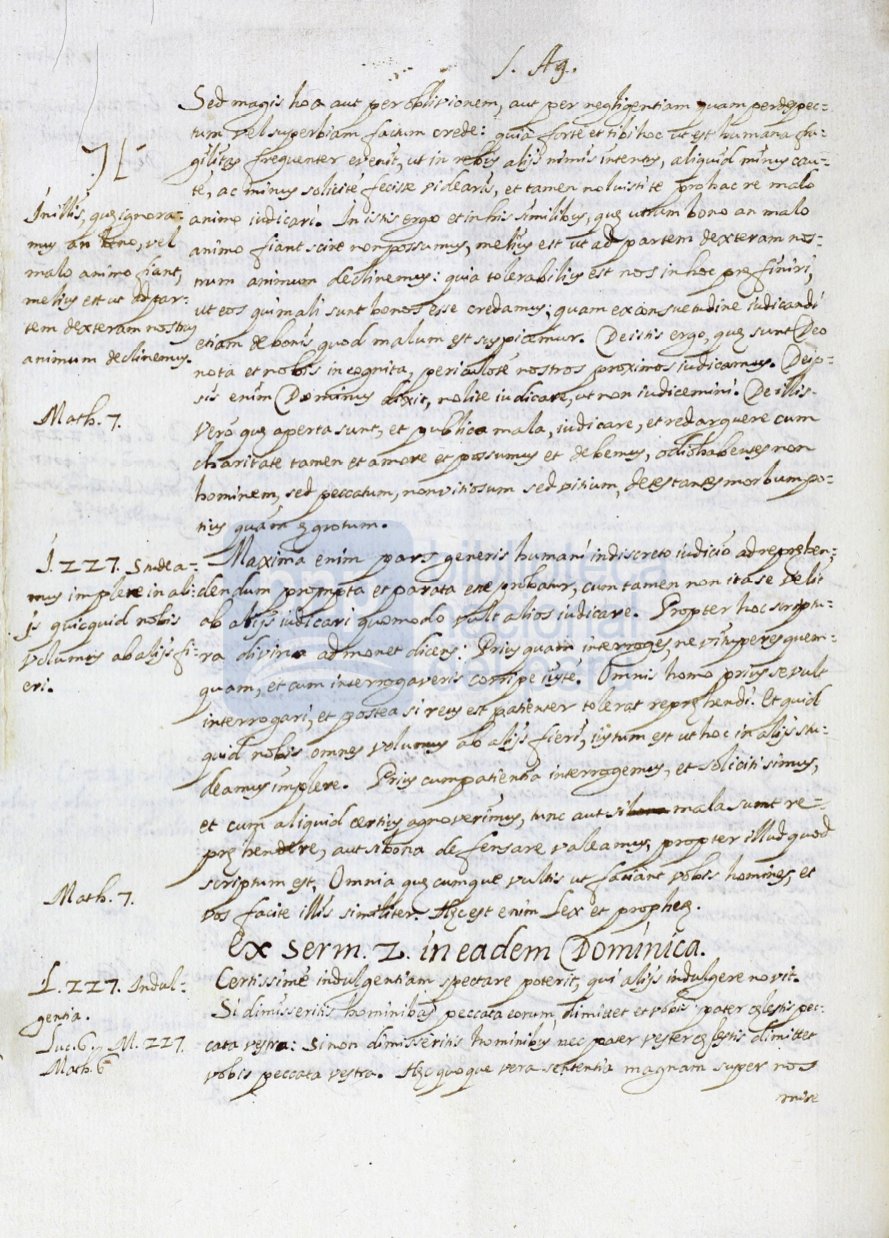 S. Ag.
Sed magis hoc aut per oblivionem, aut per negligentiam quam per despec-
tum vel superbiam factum crede: quia forte et tibi hoc ut est humana fra-
gilitas frequenter evenit, ut in rebus alijs nimis intentus, aliquid minus cau-
te, ac minus solicité fecisse videaris, et tamen noluisti te pro hac re malo
animo iudicari. In istis ergo et in his similibus, quę utrum bono an malo
animo fiant scire non possumus, melius est ut ad partem dexteram nos-
trum animum declinemus: quia tolerabilius est nos in hoc pręfiniri,
ut eos qui mali sunt bonos esse credamus; quam ex consuetudine iudicandi
etiam de bonis quod malum est suspicemur. De istis ergo, quę sunt Deo
nota et nobis incognita, periculosé nostros proximos iudicamus. De ip-
sis enim Dominus dixit, nolite iudicare, ut non iudicemini. De illis
veró quę aperta sunt, et publica mala, iudicare, et redarguere cum
charitate tamen et amore et possumus et debemus, odio habentes non
hominem, sed peccatum, non vitiosum sed vitium, detestantes morbum po-
tius quám ęgrotum.
Maxima enim pars generis humani indiscreto iudicio ad reprehen-
dendum prompta et parata esse probatur, cum tamen non ita se velit
ab alijs iudicari quomodo vult alios iudicare. Propter hoc scriptu-
ra divina admonet dicens: Prius quam interroges, ne vituperes quem-
quam, et cum interrogaveris corripe iusté. Omnis homo prius se vult
interrogari, et postea si reus est patienter tolerat reprehendi. Et quid
quid nobis omnes volumus ab alijs fieri, iustum est ut hoc in alijs stu-
deamus implere. Prius cum patientia interrogemus, et soliciti simus,
et cum aliquid certius agnoverimus, tunc aut si mala sunt re-
prehendere, aut si bona defensare valeamus, propter illud quod
scriptum est, Omnia quęcumque vultis ut faciant vobis homines, et
vos facite illis similiter. Hęc est enim Lex et prophetę.
Ex serm. 2. in eadem Dominica.
Certissimé indulgentiam spectare poterit, qui alijs indulgere novit.
Si dimisseritis hominibus peccata eorum, dimittet et vobis pater cęlestis pec-
cata vestra: si non dimisseritis hominibus nec pater vester cęlestis dimittet
vobis peccata vestra. Hęc quoque vera sententia magnam super nos
mise
In illis, quę ignora-
mus an bono, vel
malo animo fiant,
melius est ut ad par-
tem dexteram nostrum
animum declinemus.
Math. 7.
J. 227. Studea-
mus implere in ali-
js quicquid nobis
volumus ab alijs fi-
eri.
Math. 7.
L. 227. Indul-
gentia.
Luc. 6. M. 227.
Math. 6
biblioteca
nacional
del perú